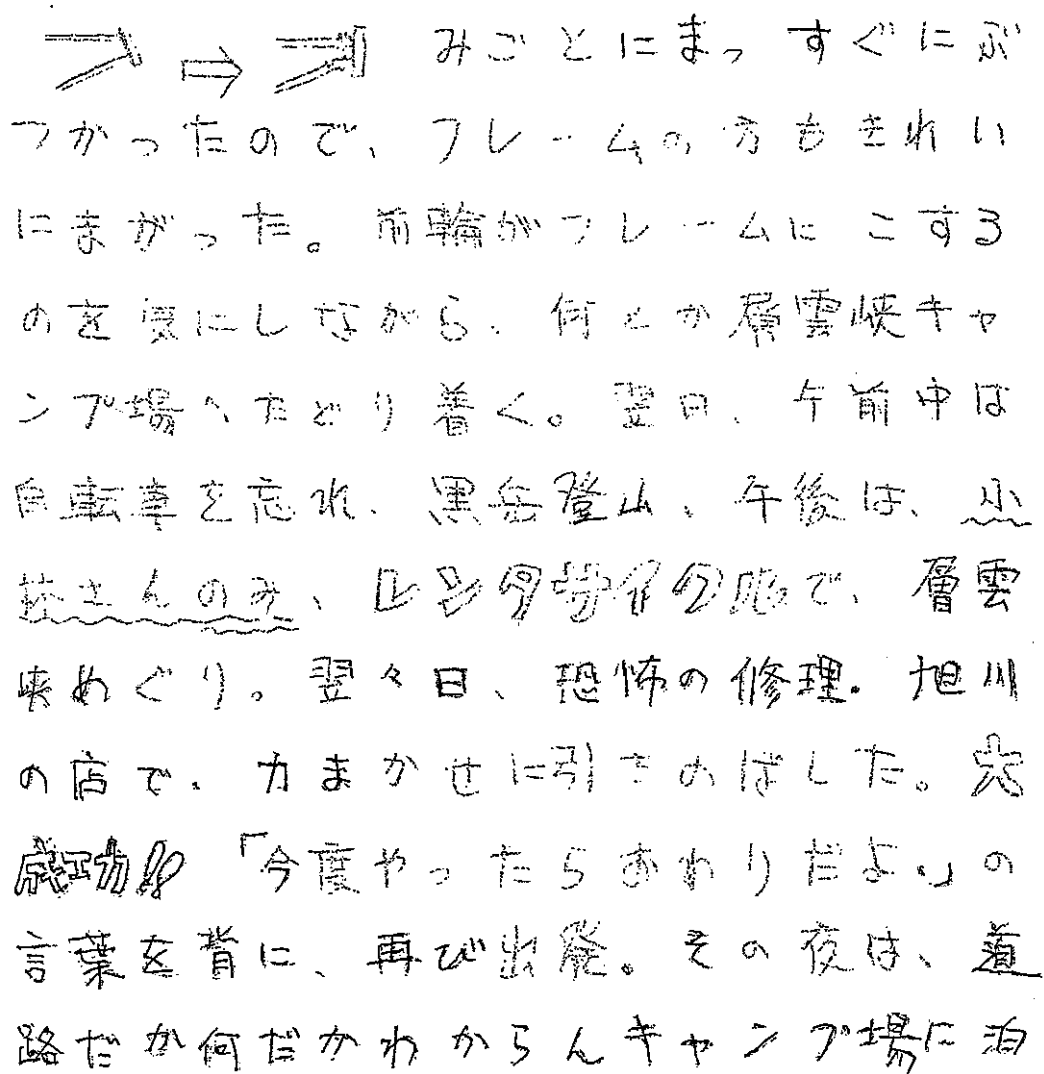 ⇨ みごとにまっすぐにぶ
つかったので、フレームの方もきれい
にまがった。前輪がフレームにこする
のを気にしながら、何とか層雲峡キャ
ンプ場へたどり着く。翌日、午前中は
自転車を忘れ、黒岳登山、午後は、小
さんのみ、レンタサイクルで、層雲
峡めぐり。翌々日、恐怖の修理。旭川
の店で、力まかせに引きのばした。大
成功!! 「今度やったらおわりだよ。」の
言葉を背に、再び出発。その夜は、道
路だか何だかわからんキャンプ場に泊